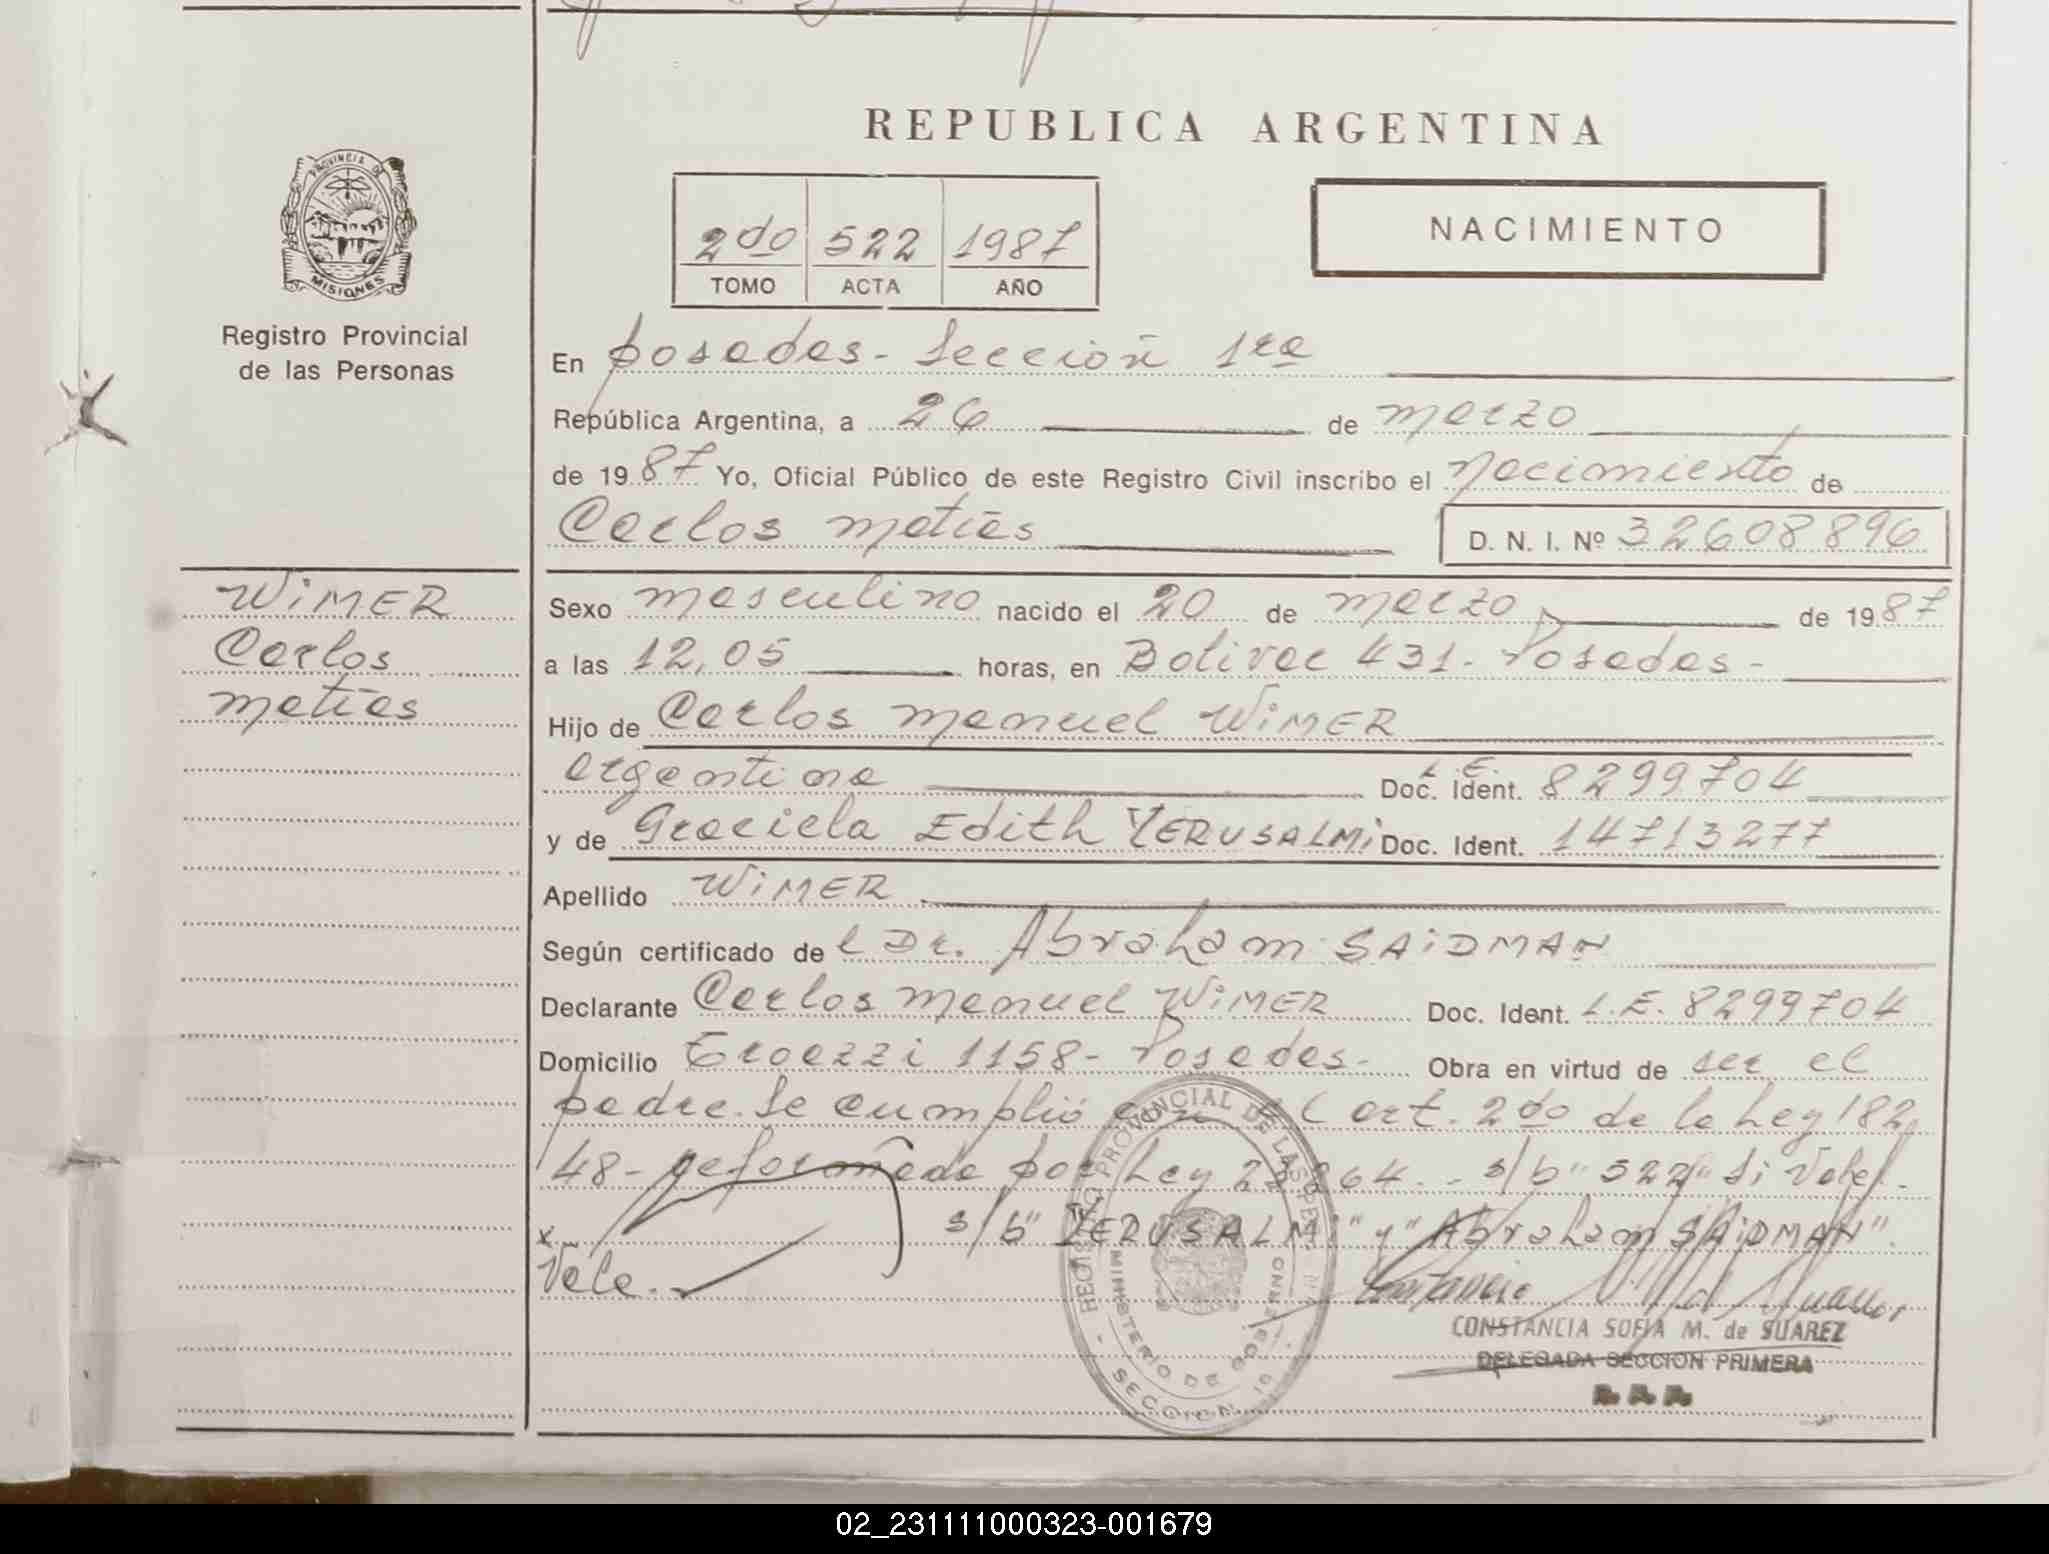 REPUBLICA ARGENTINA
PROVINCIA DE
MISIONES
Registro Provincial
de las Personas
2do 522 1987
TOMO ACTA AÑO
NACIMIENTO
En Posadas - Sección 1ra
República Argentina, a 26 de marzo
de 1987 Yo, Oficial Público de este Registro Civil inscribo el nacimiento de
Carlos matías D. N. I. Nº 32608896
WiMER
Carlos
matías
Sexo masculino nacido el 20 de marzo de 1987
a las 12,05 horas, en Bolivar 431 - Posadas -
Hijo de Carlos manuel WiMER
argentina Doc. Ident. L.E. 8299704
y de Graciela Edith YERUSALMi Doc. Ident. 14713277
Apellido WiMER
Según certificado de l Dr. Abraham SAiDMAN
Declarante Carlos manuel WiMER Doc. Ident. L.E. 8299704
Domicilio 1158 - Posadas - Obra en virtud de ser el
padre. Se cumplió con el art. 2do de la Ley 182
48 - reformada por Ley 23264. - s/b "522" Si Vale -
s/b "YERUSALMi" y "Abraham SAiDMAN".
Vale. -
REGISTRO PROVINCIAL DE LAS PERSONAS
MINISTERIO DE GOBIERNO
- SECCION 1ª -
CONSTANCIA SOFIA M. de SUAREZ
DELEGADA SECCION PRIMERA
02_231111000323-001679